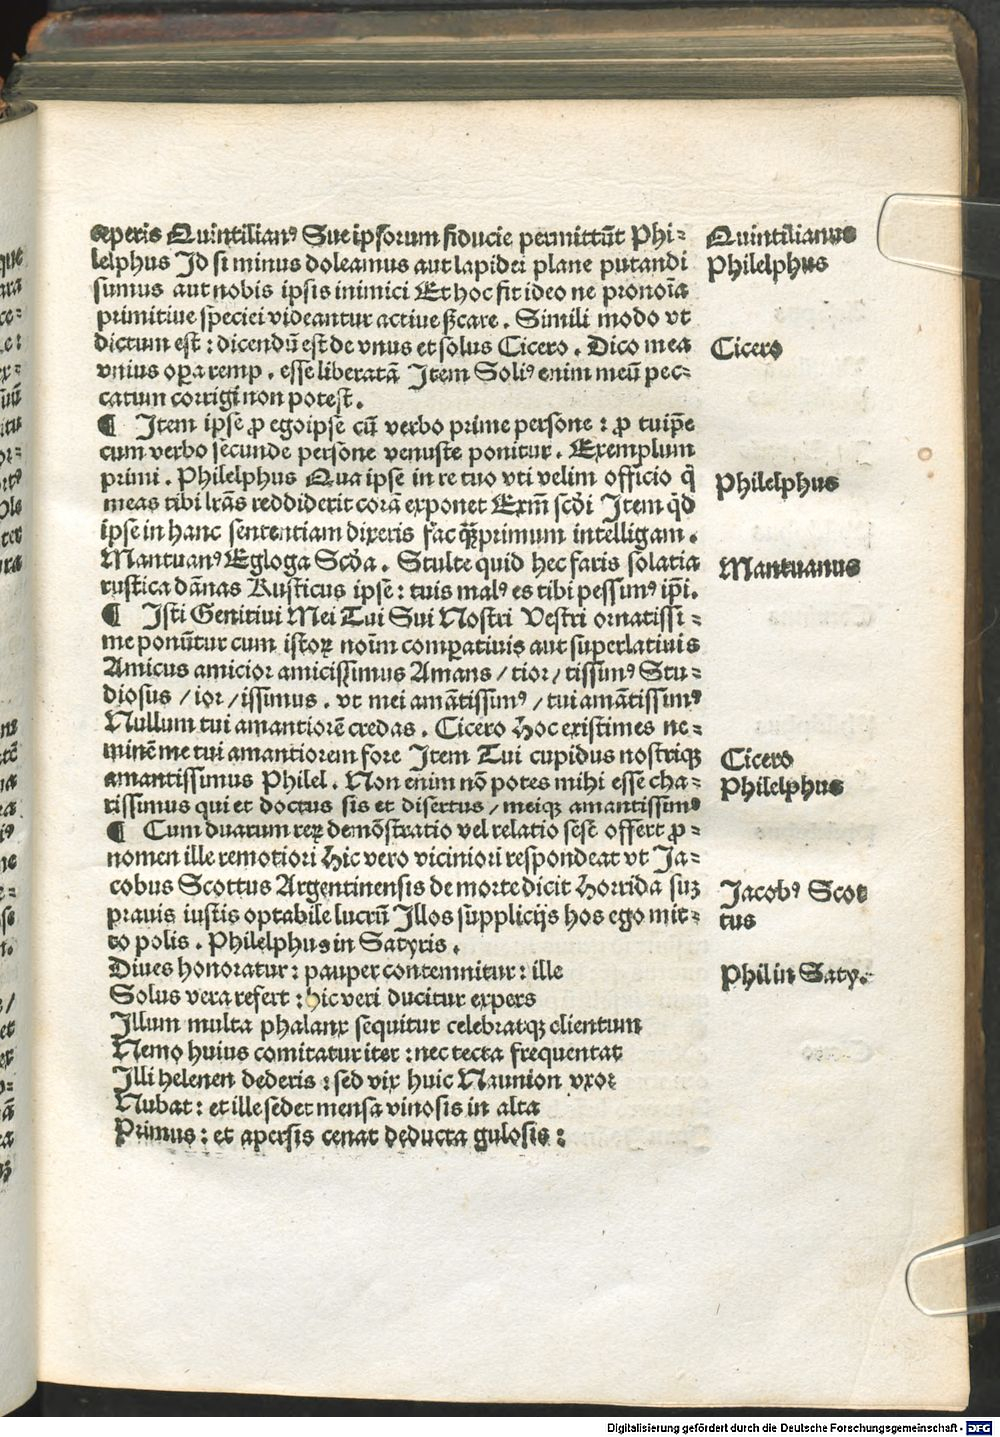 operis Quintilianꝰ Sue ipsorum fiducie permittūt Phi-
lelphus Id si minus doleamus aut lapidei plane putandi
sumus aut nobis ipsis inimici Et hoc fit ideo ne pronoīa
primitiue speciei videantur actiue ſcare. Simili modo vt
dictum est: dicendū est de vnus et solus Cicero. Dico mea
vnius oꝑa remp. esse liberatā Item Soliꝰ enim meū pec-
catum corrigi non potest.
¶ Item ipse ꝓ egoipse cū verbo prime persone: ꝓ tuip̄e
cum verbo secunde persone venuste ponitur. Exemplum
primi. Philelphus Qua ipse in re tuo vti velim officio q̄
meas tibi lr̄as reddiderit corā exponet Exm̄ scd̄i Item qd̄
ipse in hanc sententiam dixeris fac qꝫprimum intelligam.
Mantuanꝰ Egloga Scd̄a. Stulte quid hec faris solatia
rustica dānas Rusticus ipse: tuis malꝰ es tibi pessimꝰ ip̄i.
¶ Isti Genitiui Mei Tui Sui Nostri Vestri ornatissi-
me ponūtur cum istoꝝ noīm comꝑatiuis aut superlatiuis
Amicus amicior amicissimus Amans / tior / tissimꝰ Stu-
diosus / ior / issimus. vt mei amātissimꝰ / tui amātissimꝰ
Nullum tui amantiorē credas. Cicero Hoc existimes ne-
minē me tui amantiorem fore Item Tui cupidus nostriqꝫ
amantissimus Philel. Non enim nō potes mihi esse cha-
rissimus qui et doctus sis et disertus / meiqꝫ amantissimꝰ
¶ Cum duarum reꝝ demōstratio vel relatio sese offert ꝓ-
nomen ille remotiori Hic vero viciniori respondeat vt Ja-
cobus Scottus Argentinensis de morte dicit Horrida suꝫ
prauis iustis optabile lucrū Illos supplicijs hos ego mit-
to polis. Philelphus in Satyris.
Diues honoratur: pauper contemnitur: ille
Solus vera refert: hic veri ducitur expers
Illum multa phalanx sequitur celebratqꝫ clientum
Nemo huius comitatur iter: nec tecta frequentat
Illi helenen dederis: sed vix huic Naunion vxor
Nubat: et ille sedet mensa vinosis in alta
Primus: et apersis cenat deducta gulosis:
Quintilianus
Philelphus
Cicero
Philelphus
Mantuanus
Cicero
Philelphus
Jacobꝰ Scot
tus
Phil in Saty.
Digitalisierung gefördert durch die Deutsche Forschungsgemeinschaft - DFG